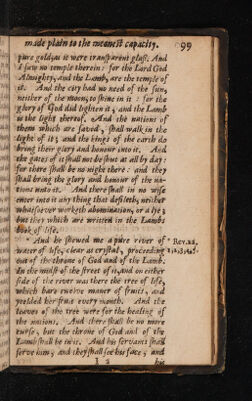 made plain to the meanest capacity. 99
pure gold, as it were transparent glass. And
I saw no temple therein: for the Lord God
Almighty, and the Lamb, are the temple of
it. And the city had no need of the sun,
neither of the moon, to shine in it: for the
glory of God did lighten it, and the Lamb
is the light thereof. And the nations of
them which are saved, shall walk in the
light of it; and the kings of the earth do
bring their glory and honour into it. And
the gates of it shall not be shut at all by day:
for there shall be no night there: and they
shall bring the glory and honour of the na-
tions unto it. And there shall in no wise
enter into it any thing that defileth, neither
whatsoever worketh abomination, or a lye;
but they which are written in the Lambs
book of life.
* And he shewed me a pure river of
* Rev. 22.
water of life, clear as crystal, proceeding
out of the throne of God and of the Lamb.
In the midst of the street of it, and on either
side of the river was there the tree of life,
which bare twelve manner of fruits, and
yeelded her fruit every month. And the
leaves of the tree were for the healing of
the nations. And there shall be no more
curse, but the throne of God and of the
Lamb shall be in it. And his servants shall
serve him; and they shall see his face; and
I 2 his